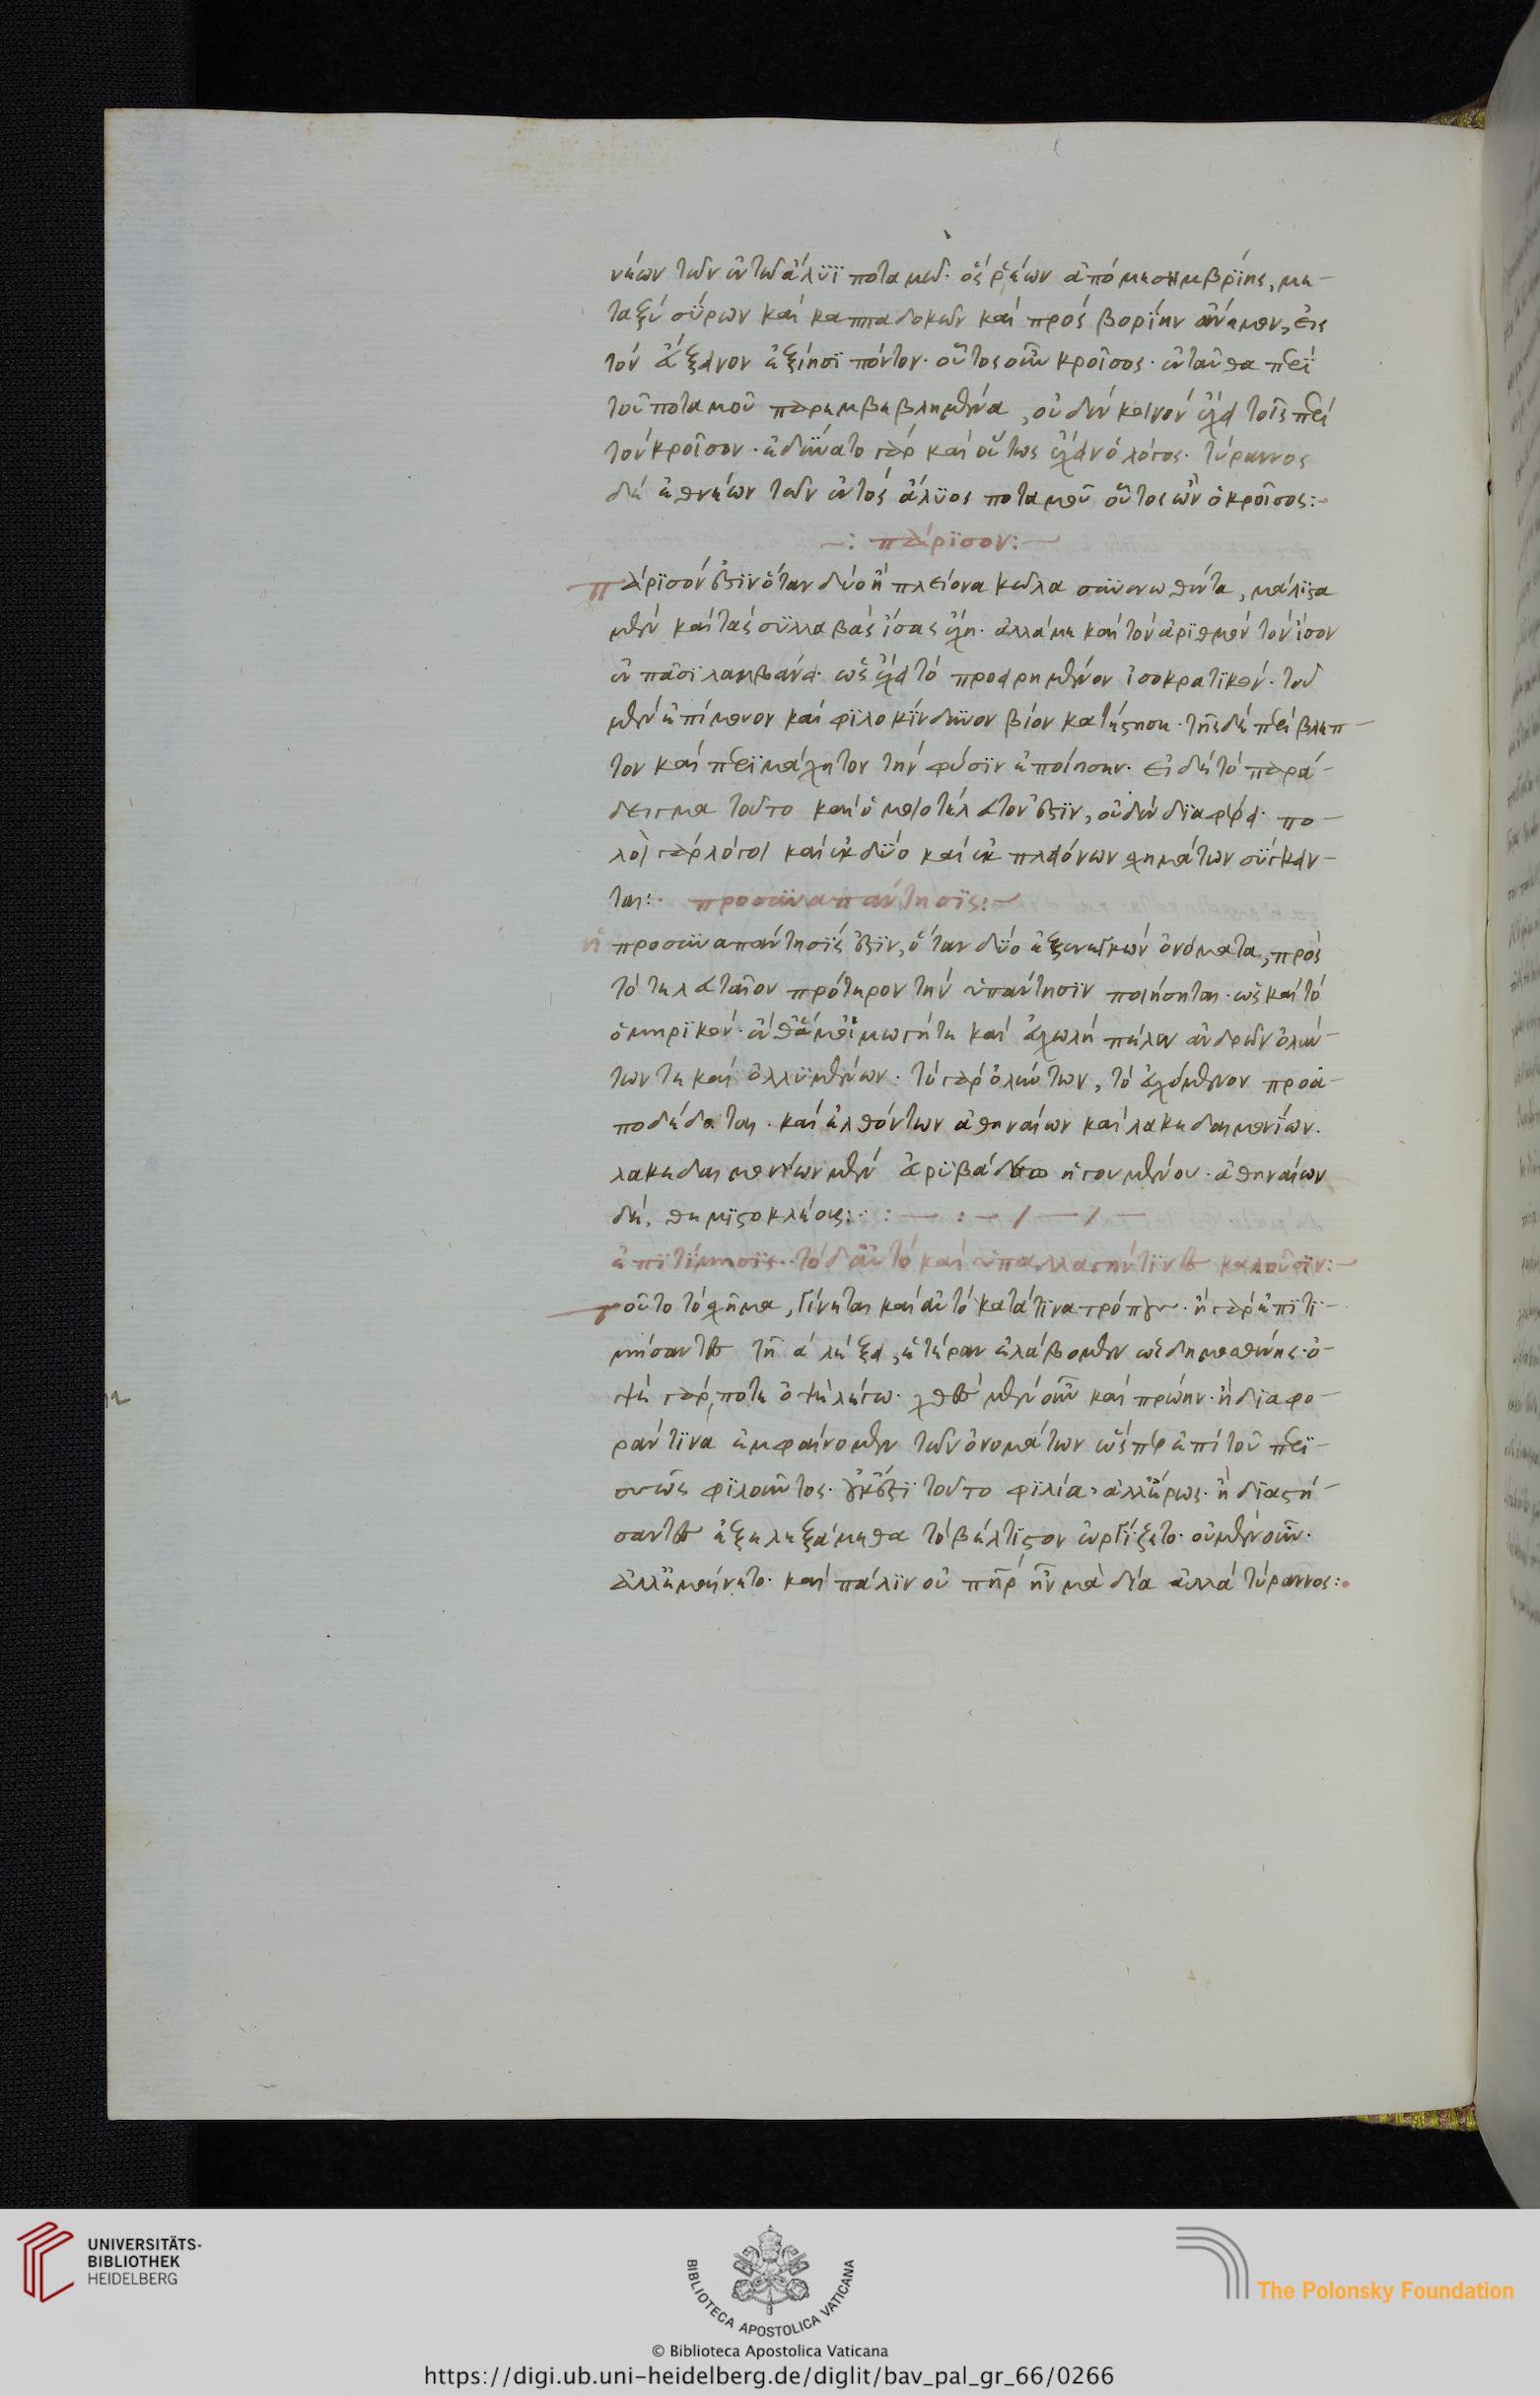 νέων τῶν ἐντὸς ἅλϋϊ ποταμῶ· ὃς ῥέων ἀπὸ μεσημβρίης, με-
ταξὺ σύρων καὶ καππαδοκῶν καὶ πρὸς βορίην ἄνεμον, εἰς
τὸν εὔξεινον ἐξίησϊ πόντον· οὗτος οὖν κροῖσος· ἐνταῦθα περὶ
τοῦ ποταμοῦ παρεμβεβλημένα, οὐδὲν καινὸν ἔχει τοῖς περὶ
τὸν κροῖσον· ἐδύνατο γὰρ καὶ οὕτως ἔχειν ὁ λόγος· τύραννος
δὲ ἐθνέων τῶν ἐντὸς ἅλϋος ποταμοῦ οὗτος ὢν ὁ κροῖσος:
-: πάρϊσον:-
πάρϊσόν ἐστϊν ὅταν δύο ἢ πλείονα κῶλα συνενωθέντα, μάλϊστα
μὲν καὶ τὰς συλλαβὰς ἴσας ἔχη· ἀλλά με καὶ τὸν ἀρϊθμὸν τὸν ἴσον
ἐν πᾶσϊ λαμβάνει· ὡς ἔχει τὸ προειρημένον ἰσοκρατϊκόν· τοῦ
μὲν ἐπίπονον καὶ φϊλοκίνδυνον βίον κατέστησε· τῆς δὲ περίβλεπ-
τον καὶ περϊμάχητον τὴν φύσϊν ἐποίησεν· εἰ δὲ τὸ παρά-
δειγμα τοῦτο καὶ ὁμοιοτέλευτόν ἐστϊν, οὐδὲν δϊαφέρει· πο-
λοὶ γὰρ λόγοι καὶ ἐκ δύο καὶ ἐκ πλειόνων σχημάτων σύγκειν-
ται: προσυναπάντησϊς:-
ἡ προσυναπάντησϊς ἐστϊν, ὅταν δύο ἐξενεγκὼν ὀνόματα, πρὸς
τὸ τελευταῖον πρότερον τὴν ὑπάντησϊν ποιήσηται· ὡς καὶ τὸ
ὁμηρϊκόν· ἔνθα δ᾽ ἅμ᾽ οἰμωγή τε καὶ εὐχωλὴ πέλεν ἀνδρῶν ὀλλύν-
των τε καὶ ὀλλυμένων· τὸ γὰρ ὀλλύντων, τὸ εὐχόμενον προα-
ποδέδοται· καὶ ἐλθόντων ἀθηναίων καὶ λακεδαιμονίων·
λακεδαιμονίων μὲν εὐρϋβάδου ἡγουμένου· ἀθηναίων
δὲ, θεμϊστοκλέους:
ἐπϊτίμησϊς· τὸ δ᾽ αὐτὸ καὶ ὑπαλλαγήν τϊνες καλοῦσϊν:-
τοῦτο τὸ σχῆμα, γίνεται καὶ αὐτὸ κατά τϊνα τρόπον· ἢ γὰρ ἐπϊτϊ-
μήσαντες τῆ ά λέξει, ἑτέραν ἐλάβομεν ὡς δημοσθένης· ὀ-
ψὲ γάρ, ποτε ὀψὲ λέγω· χθὲς μὲν οὖν καὶ πρώην· ἢ δϊαφο-
ράν τϊνα ἐμφαίνομεν τῶν ὀνομάτων ὥσπερ ἐπὶ τοῦ περϊ-
σσῶς φϊλοῦντος· οὐκ ἔστϊ τοῦτο φϊλία· ἀλλ᾽ ἔρως· ἢ δϊαστή-
σαντες ἐξελεξάμεθα τὸ βέλτϊστον ὠργίζετο· οὐ μὲν οὖν·
ἀλλ᾽ ἐμαίνετο· καὶ πάλϊν οὐ πατὴρ ἦν μὰ δία ἀλλὰ τύραννος:
UNIVERSITÄTS-
BIBLIOTHEK
HEIDELBERG
BIBLIOTECA APOSTOLICA VATICANA
The Polonsky Foundation
© Biblioteca Apostolica Vaticana
https://digi.ub.uni-heidelberg.de/diglit/bav_pal_gr_66/0266